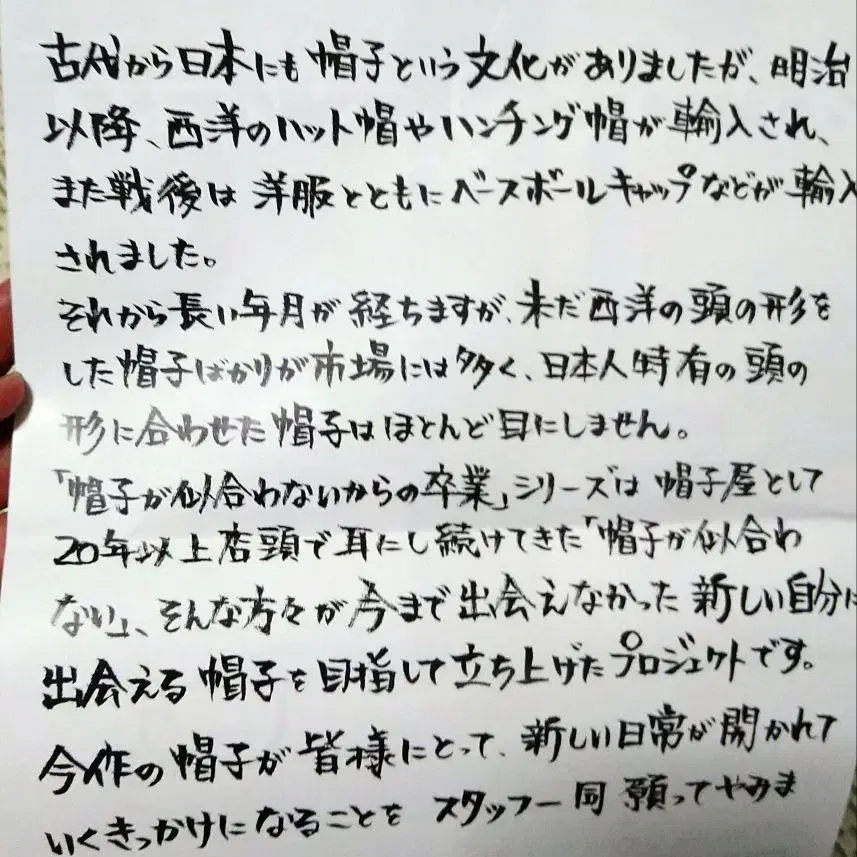 古代から日本にも帽子という文化がありましたが、明治
以降、西洋のハット帽やハンチング帽が輸入され、
また戦後は洋服とともにベースボールキャップなどが輸入
されました。
それから長い年月が経ちますが、未だ西洋の頭の形を
した帽子ばかりが市場には多く、日本人特有の頭の
形に合わせた帽子はほとんど目にしません。
「帽子が似合わないからの卒業」シリーズは帽子屋として
20年以上店頭で耳にし続けてきた「帽子が似合わ
ない」、そんな方々が今まで出会えなかった新しい自分に
出会える帽子を目指して立ち上げたプロジェクトです。
今作の帽子が皆様にとって、新しい日常が開かれて
いくきっかけになることをスタッフ一同願ってやみま